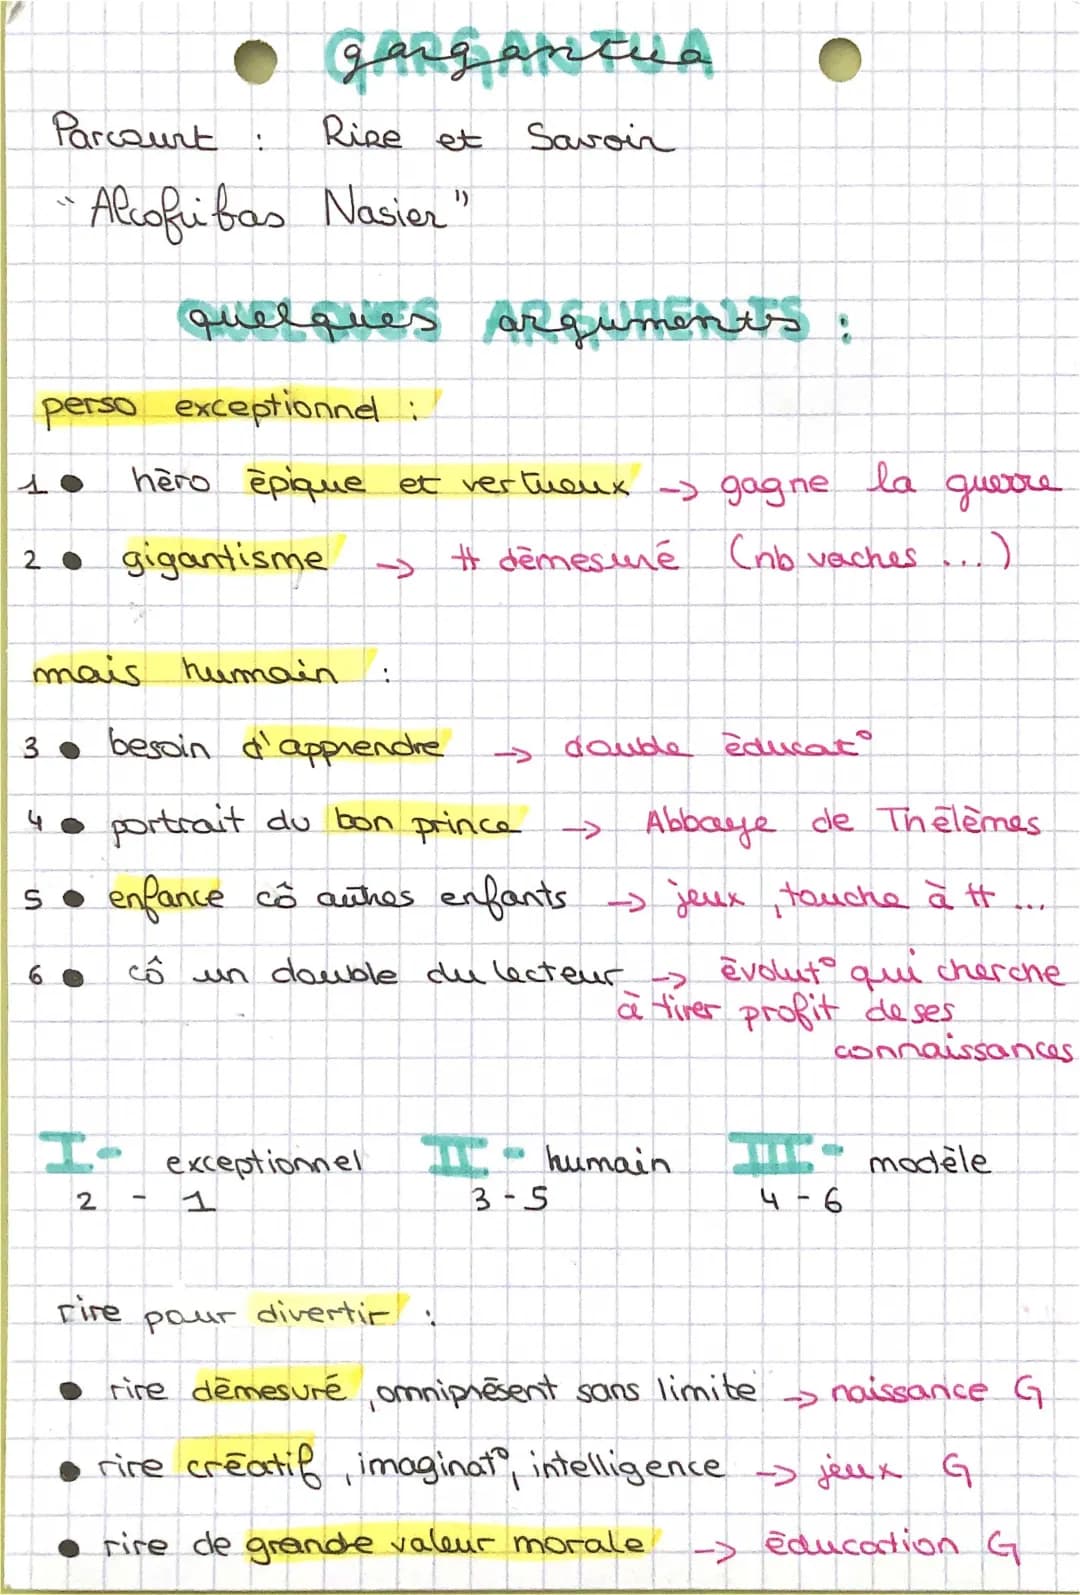 gargantua
Parcourt : Rire et Savoir
"Alcofribas Nasier"
quelques arguments :
perso exceptionnel :
1 ● héro épique et vertueux -> gagne la guerre
2 ● gigantisme -> tt démesuré (nb vaches ...)
mais humain :
3 ● besoin d'apprendre -> double éducat°
4 ● portrait du bon prince -> Abbaye de Thélèmes
5 ● enfance cô autres enfants -> jeux, touche à tt ...
6 ● cô un double du lecteur -> évolut° qui cherche
à tirer profit de ses
connaissances
I - exceptionnel II - humain III - modèle
2 - 1 3 - 5 4 - 6
rire pour divertir :
● rire démesuré, omniprésent sans limite -> naissance G
● rire créatif, imaginat°, intelligence -> jeux G
● rire de grande valeur morale -> éducation G